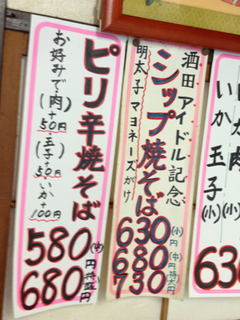 ピリ辛焼そば
お好みで(肉)+50円
(玉子)+50円
いか+100円
580(中)円
680特盛円
酒田アイドル記念
シップ焼そば
明太子マヨネーズがけ
630(小)円
680(中)円
730特大円
(小)
いか玉子(小)
630